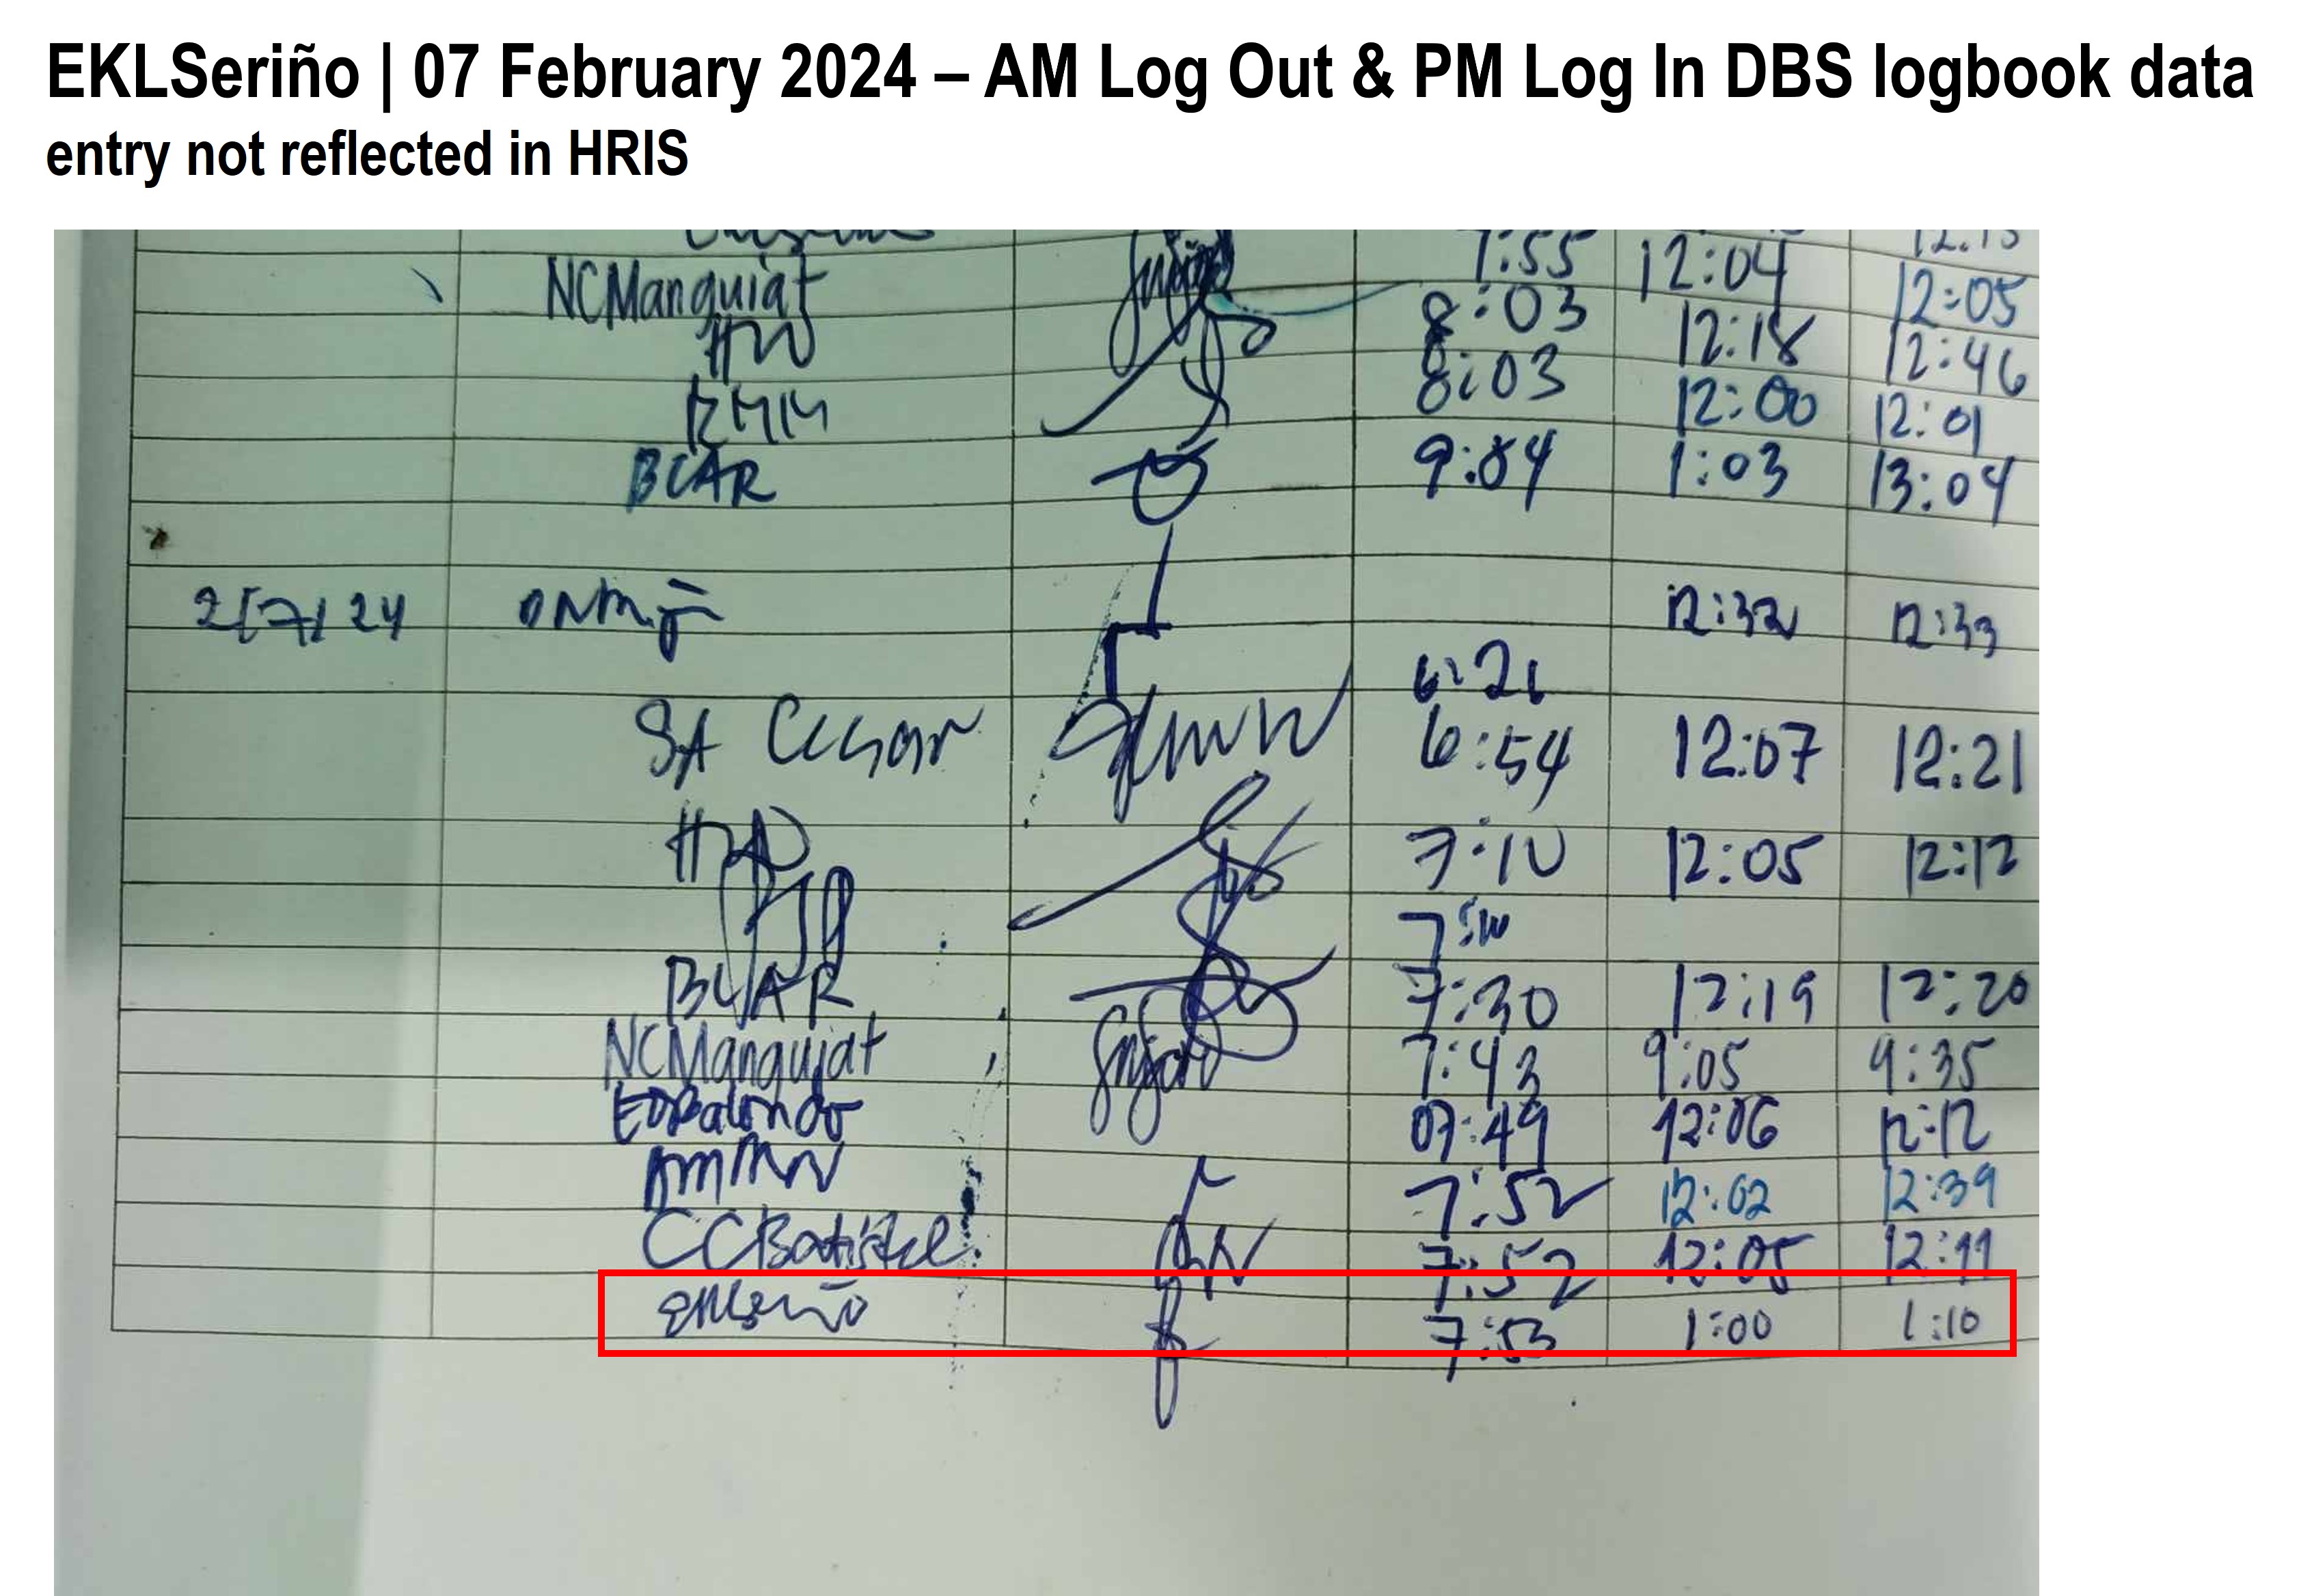 EKLSeriño | 07 February 2024 – AM Log Out & PM Log In DBS logbook data
entry not reflected in HRIS
7:55 12:04 12:15
NCManquiat 8:03 12:18 12:05
8:03 12:00 12:46
RMM 12:01
BCAR 9:04 1:03 13:04
2/7/24 12:32 12:33
6:21
SA Cesar 6:54 12:07 12:21
7:10 12:05 12:12
7:10
BCAR 7:30 12:19 12:20
NCManquiat 7:43 9:05 9:35
EDBalondo 07:49 12:06 12:12
7:52 12:02 12:39
CCBatistel 7:52 12:05 12:11
EKLSeriño 7:53 1:00 1:10